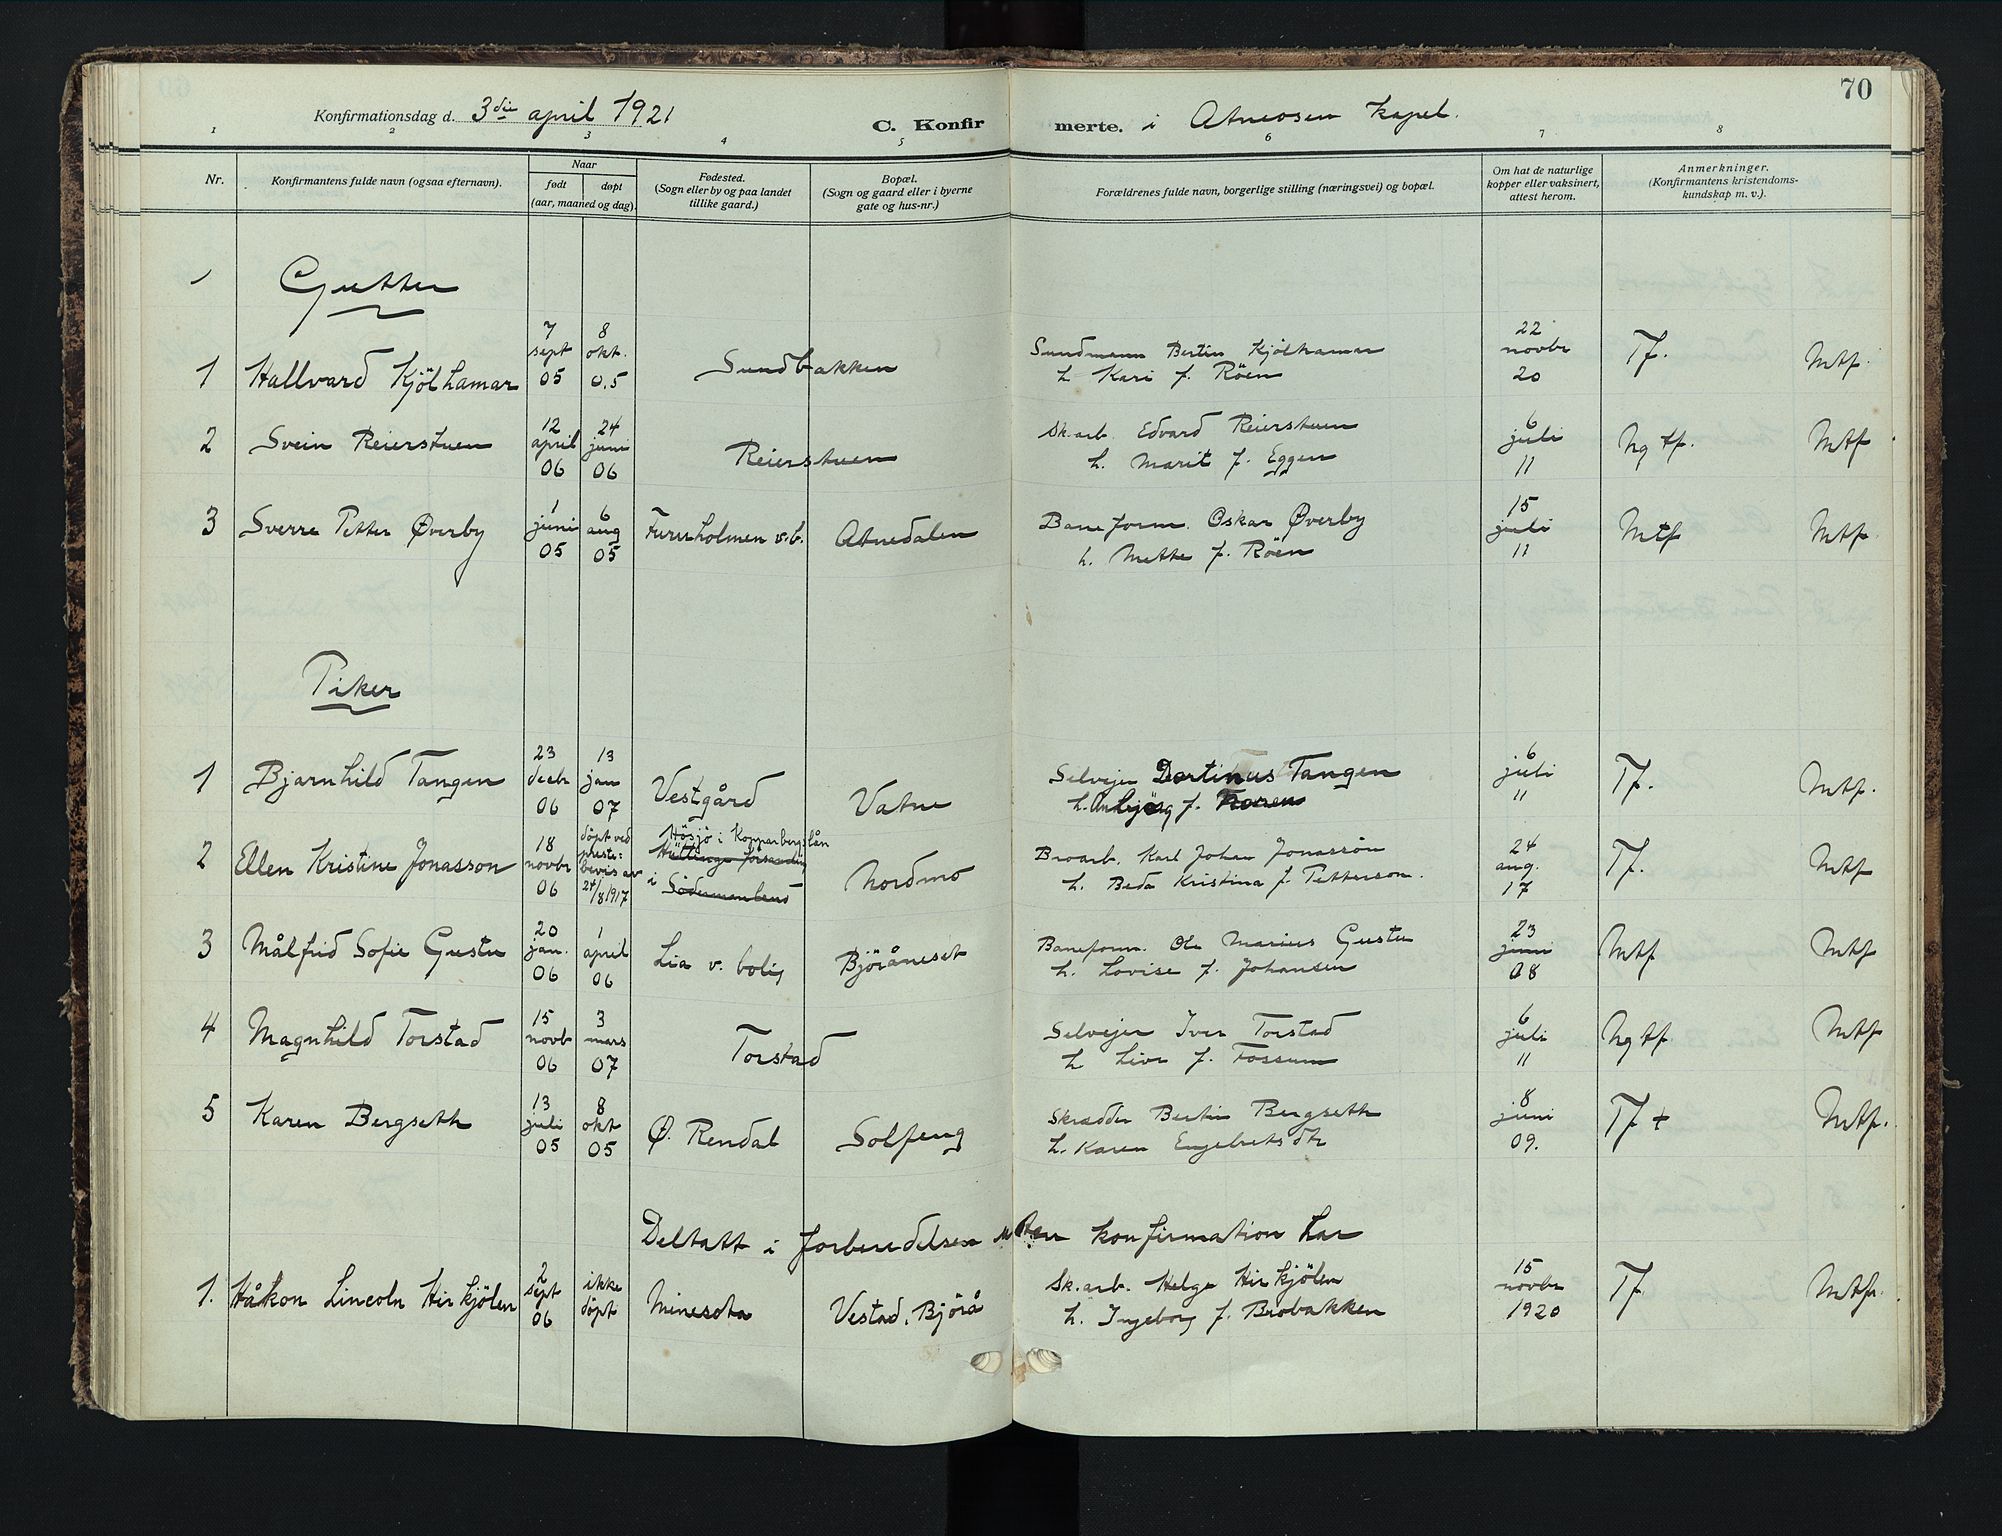 70
Konfirmationsdag d. 3die april 1921 C. Konfirmerte. i Atneosen kapel.
1 2 3 4 5 6 7 8
Nr.
Konfirmantens fulde navn (ogsaa efternavn).
Naar
født døpt
(aar, maaned og dag).
Fødested.
(Sogn eller by og paa landet
tillike gaard.)
Bopæl.
(Sogn og gaard eller i byerne
gate og hus-nr.)
Forældrenes fulde navn, borgerlige stilling (næringsvei) og bopæl.
Om hat de naturlige
kopper eller vaksinert,
attest herom.
Anmerkninger.
(Konfirmantens kristendoms-
kundskap m. v.).
Gutter
1 Hallvard Kjölhamar 7 sept 05 8 okt. 0.5 Sundbakken Sundmann Bertin Kjölhamar 22 novbr 20 Tf. Mtf.
h. Kari f. Röen
2 Svein Reierstuen 12 april 06 24 juni 06 Reierstuen Sk.arb. Edvard Reierstuen 6 juli 11 Ng tf. Mtf
h. Marit f. Eggen
3 Sverre Petter Øverby 1 juni 05 6 aug 05 Furuholmen v.b. Atnedalen Baneform. Oskar Øverby 15 juli 11 Mtf Mtf.
h. Mette f. Röen
Piker
1 Bjarnhild Tangen 23 decbr 06 13 jan 07 Vestgård Vatne Selvejer Dortinus Tangen 6 juli 11 Tf. Mtf.
h. f.
2 Ellen Kristine Jonasson 18 novbr 06 døpt ved preste: bevis av 24/8 1917 Hösjö i Kopparbergslän i Södermanland Nordmo Broarb. Karl Johan Jonassön 24 aug. 17 Tf. Mtf
h. Beda Kristina f. Petterson.
3 Målfrid Sofie Gustu 20 jan. 06 1 april 06 Lia v. bolig Björåneset Baneform. Ole Marius Gustu 23 juni 08 Mtf Mtf
h. Lovise f. Johansen
4 Magnhild Torstad 15 novb 06 3 mars 07 Torstad Selvejer Iver Torstad 6 juli 11 Ng tf Mtf
h Live f. Fossum
5 Karen Bergseth 13 juli 05 8 okt 05 Ø. Rendal Solfeng Skrædder Bertin Bergseth 8 juni 09. Tf + Mtf.
h. Karen Engebretsdtr
Deltatt i forberedelsen uten konfirmation har
1. Håkon Lincoln Hirkjölen 2 sept 06 ikke døpt Minesota Vestad, Bjørå Sk.arb. Helge Hirkjölen 15 novbr 1920 Tf. Mtf.
h. Ingeborg f. Brobakken